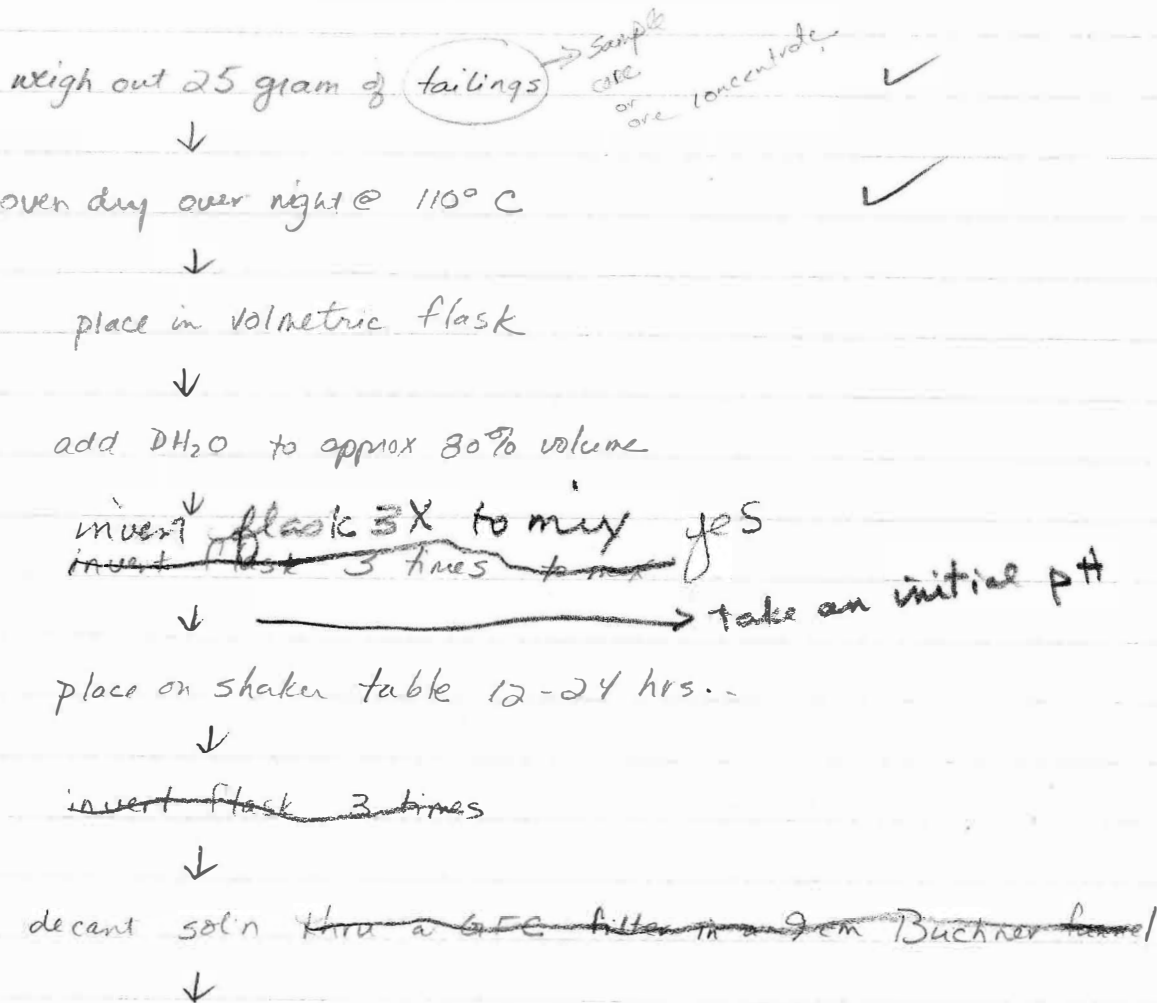 weigh out 25 gram of tailings → sample
core
or
ore concentrate. ✓
↓
oven dry over night @ 110° C ✓
↓
place in volmetric flask
↓
add DH₂O to approx 80% volume
↓
invert flask 3X to mix yes
invert flask 3 times to mix
↓ → take an initial pH
place on shaker table 12-24 hrs..
↓
invert flask 3 times
↓
decant sol'n thru a GFC filter in a 9 cm Buchner funnel
↓